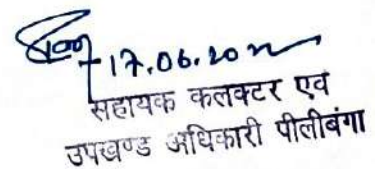 17.06.20
सहायक कलक्टर एव
उपखण्ड अधिकारी पीलीबंगा